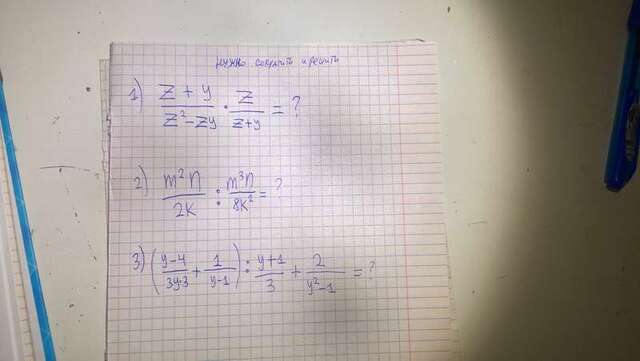 нужно сократить и решить
1) \frac{z+y}{z^2-zy} \cdot \frac{z}{z+y} = ?
2) \frac{m^2n}{2k} : \frac{m^3n}{8k^2} = ?
3) \left(\frac{y-4}{3y-3} + \frac{1}{y-1}\right) : \frac{y+1}{3} + \frac{2}{y^2-1} = ?